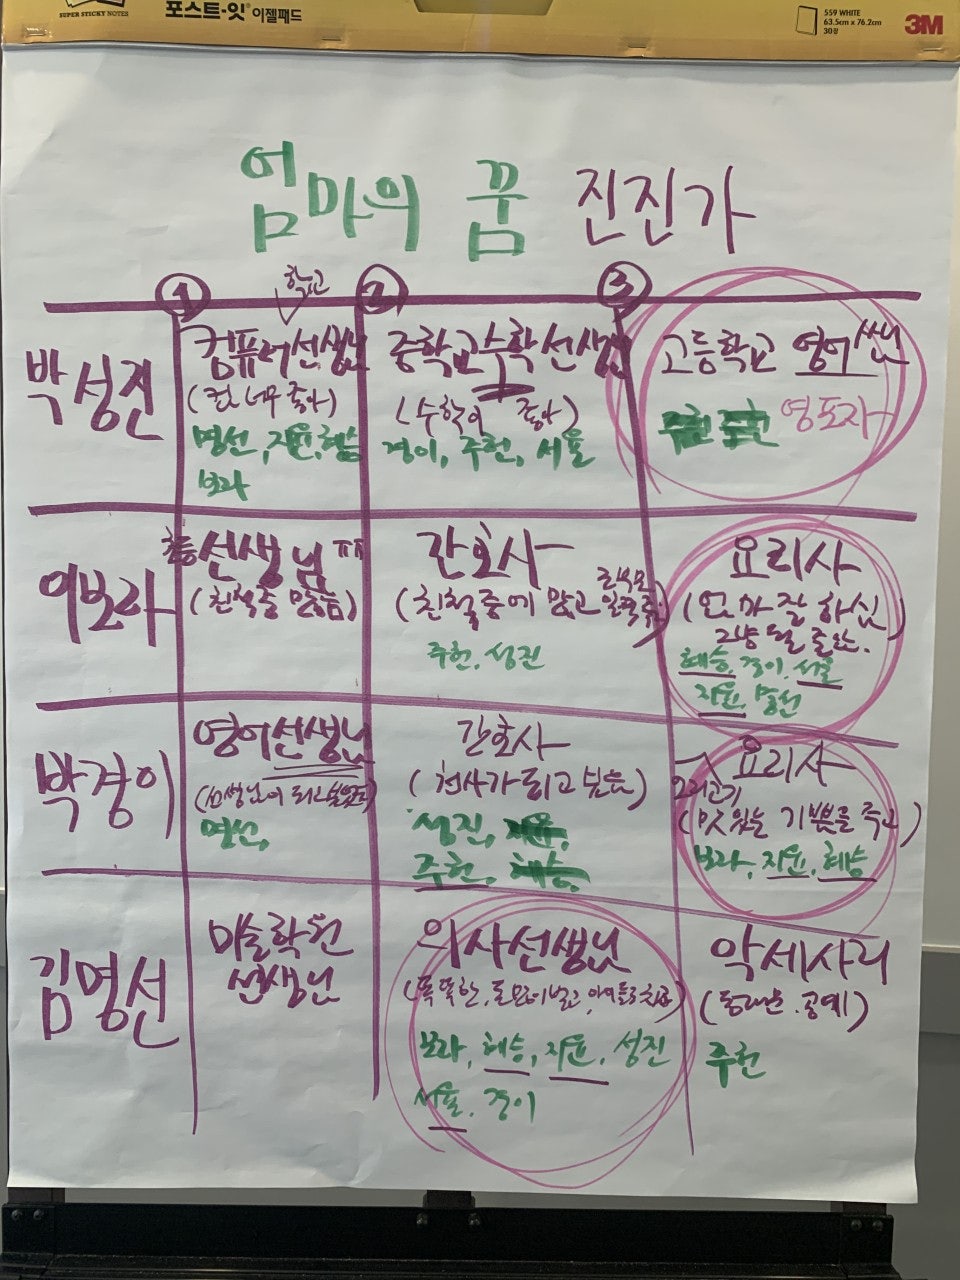 SUPER STICKY NOTES
포스트-잇 이젤패드
559 WHITE
63.5cm x 76.2cm
30장
3M
엄마의 꿈 진진가
① 학교 ② ③
박성진
컴퓨터선생님
(컴 너무 좋아)
명선, 지윤, 혜승
보라
중학교 수학 선생님
(수학이 좋아)
경이, 주헌, 서율
고등학교 영어쌤
영포자
이보라
초등 선생님 ㅠㅠ
(친척중 많음)
간호사
(친척중에 많고
주헌, 성진
요리사
(엄마 잘 하심)
혜승, 경이, 서율
지윤, 명선
박경이
영어선생님
(선생님이 되고 싶었음)
명선,
간호사
(천사가 되고 싶음)
성진, 지윤,
주헌, 혜승,
요리사
(맛있는 기쁨을 주고)
보라, 지윤, 혜승
김명선
미술학원
선생님
의사선생님
(똑똑한, 돈 많이 벌고, 아이들 치료)
보라, 혜승, 지윤, 성진
서율, 경이
악세사리
(동대문, 공예)
주헌